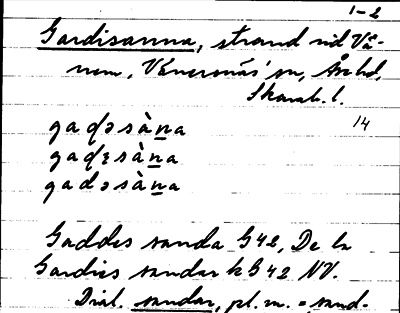 1-2
Gardisanna, strand vid Vä-
nern, Vänersnäs sn, Åse hd,
Skarab. l.
14
gaɖəsàna
gaɖɛsàna
gadəsàna
Gaddes sanda G42, De la
Gardies sandar k G42 NV.
Dial. sandar, pl. m. = sand-